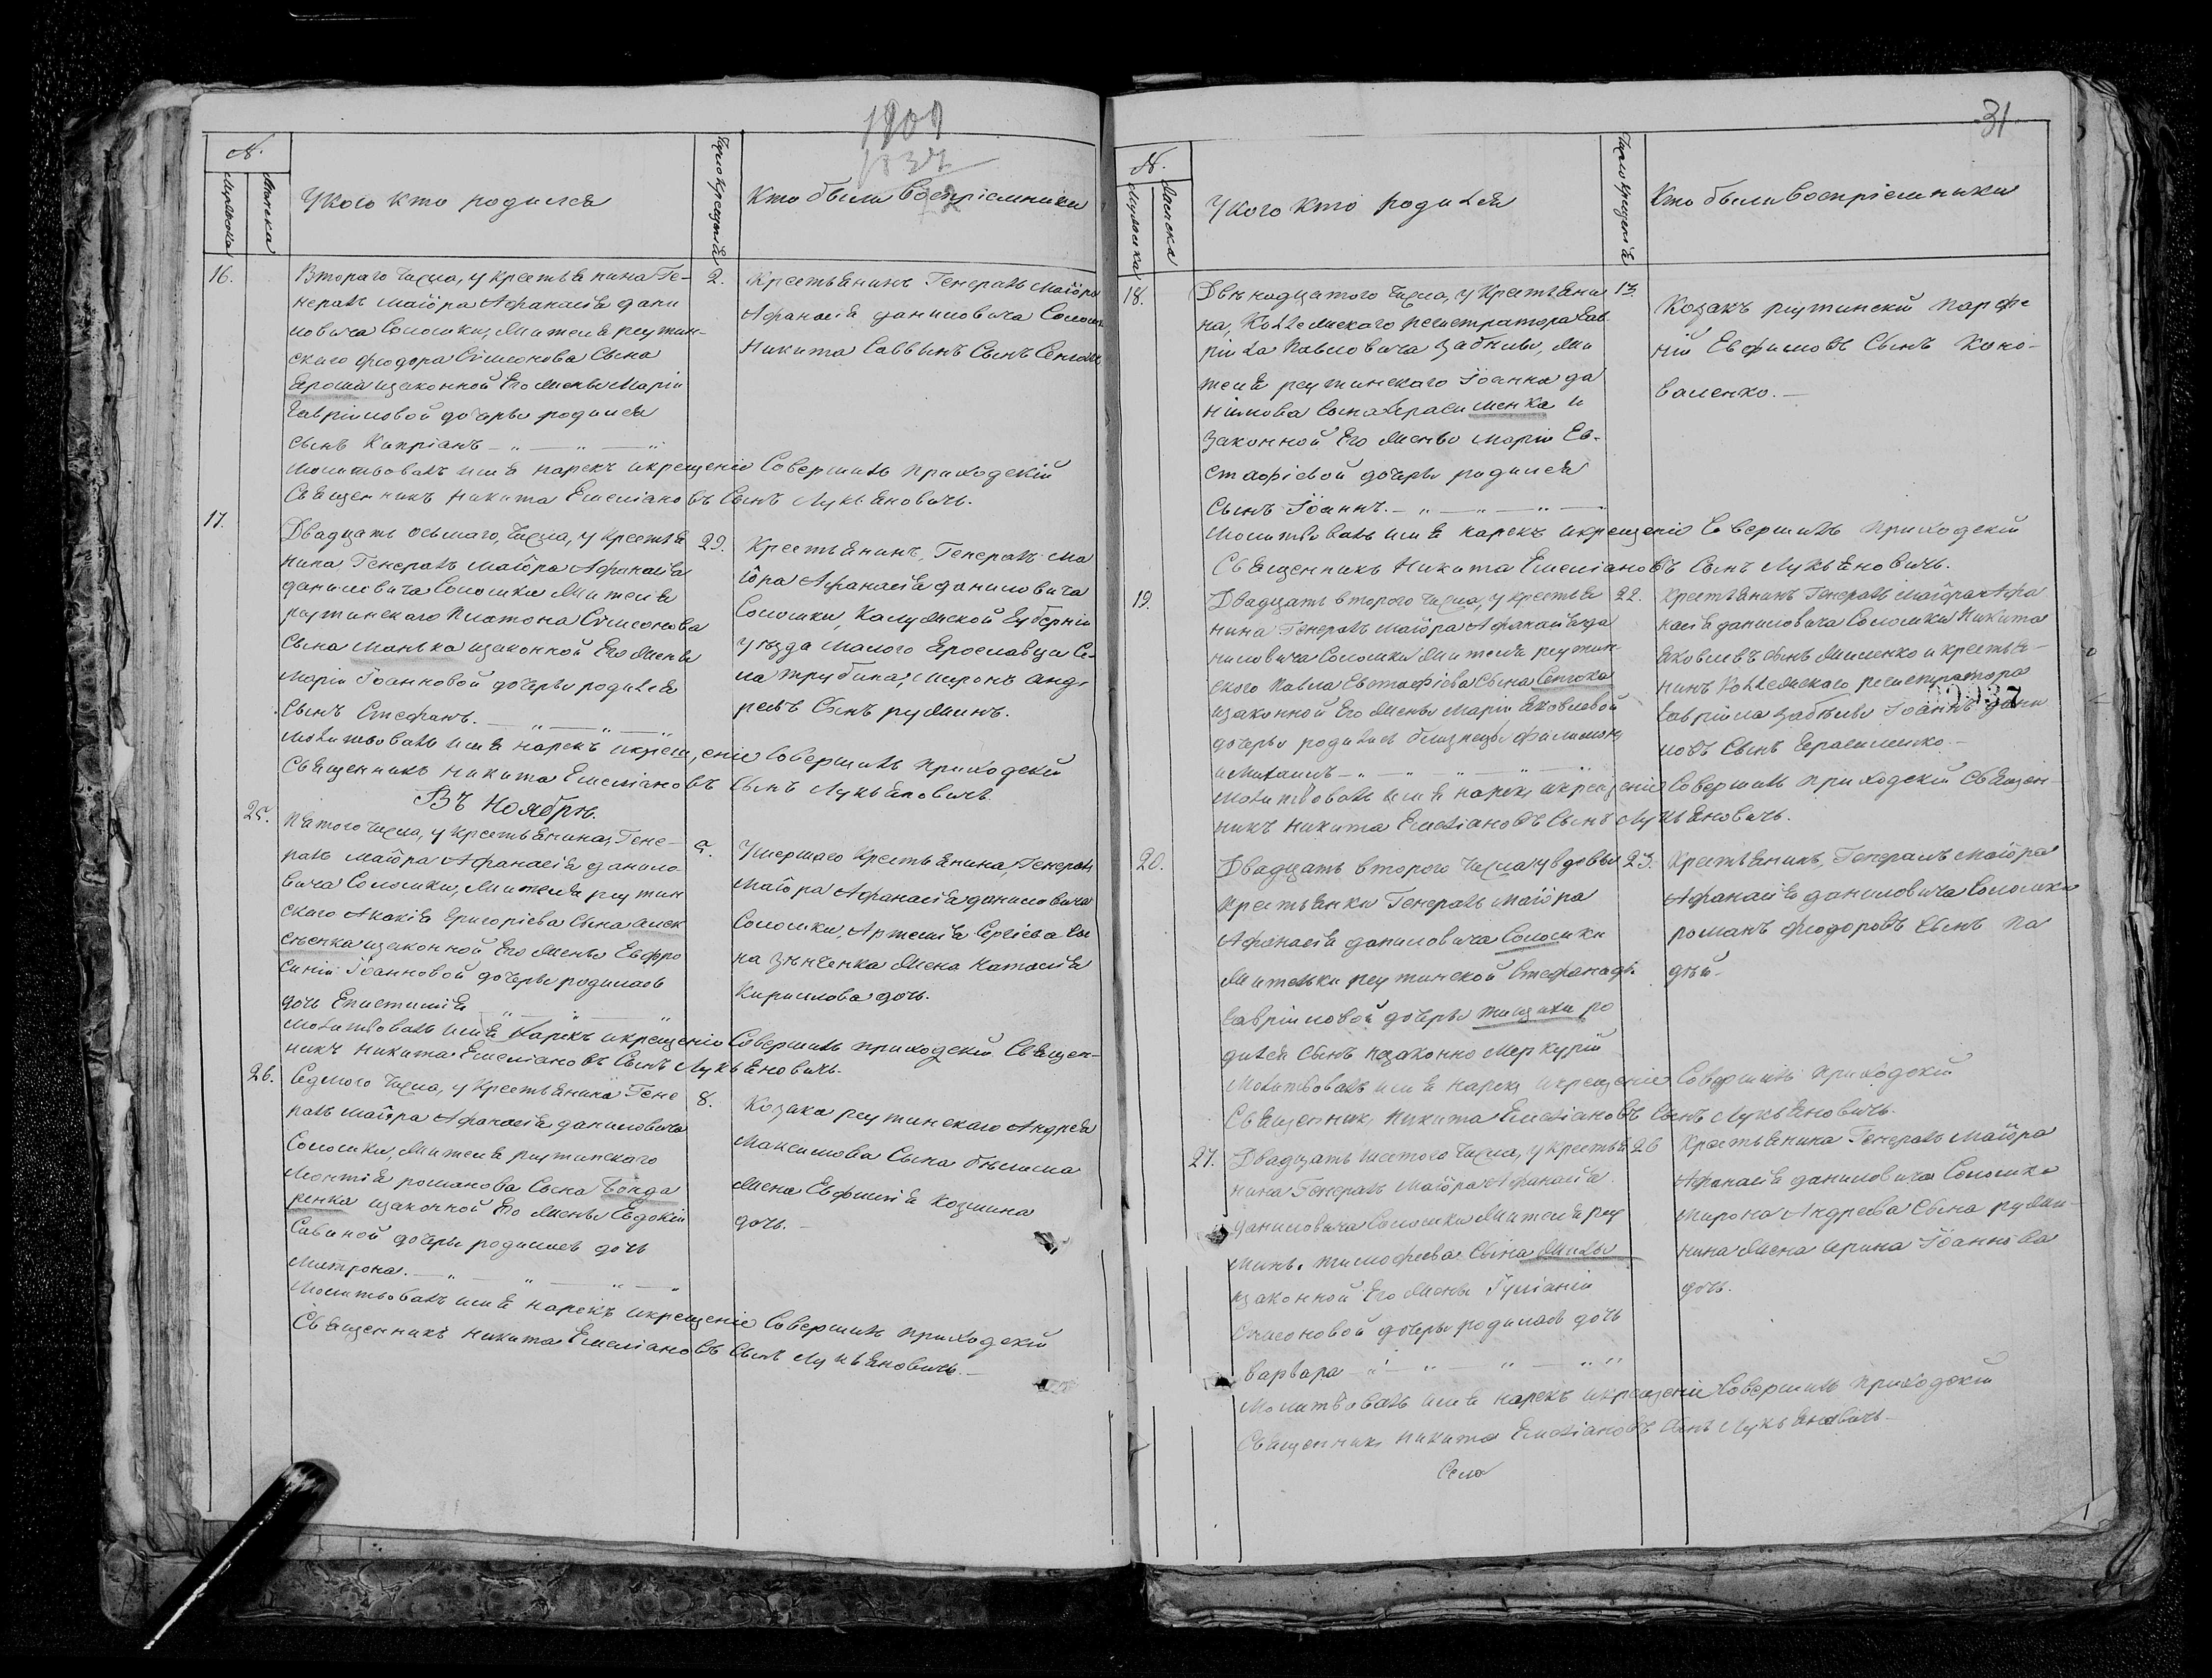 1901
1837
№.
Мужеска
Женска
У кого кто родился
Число крещенія
Кто были воспріемники
16.
Втораго числа, у крестьянина Ге-
нералъ маіора Афанасія дани
ловича Соломки, жителя реутин-
скаго Феодора Сѵмеонова сына
Ероша изаконной Его жены Маріи
Гавріиловой дочеры родился
сынъ Кипріанъ
2.
Крестьянинъ Генералъ маіора
Афанасія даниловича Солом
Никита Саввинъ Сынъ
Молитвовалъ имя нарекъ икрещеніе Совершилъ приходскій
Священникъ Никита Емеліановъ Сынъ Лукьяновичъ.
17.
Двадцать осьмаго, числа, у крестья
нина Генералъ маіора Афанасія
даниловича Соломки жителя
реутинскаго Платона Сѵмеонова
сына Манька изаконной Его жены
Маріи Іоанновой дочеры родился
Сынъ Стефанъ.
29.
Крестьянинъ, Генералъ ма
іора Афанасія даниловича
Соломки, Калужской Губерніи
уѣзда Малого Ярославца Се-
ла трубина, Миронъ анд,
реевъ Сынъ ружинъ.
Молитвовалъ имя нарекъ икрещ,еніе Совершилъ приходскій
Священникъ Никита Емеліановъ Сынъ Лукьяновичъ
Въ Ноябрѣ.
25.
Пятого числа, у крестьянина, Гене-
ралъ маіора Афанасія данило
вича Соломки, жителя реутин
скаго Акакія Григоріева Сына алек
сѣенка изаконной Его жены Евфро
синіи Іоанновой дочеры родилась
дочь Епистимія
5.
Умершаго крестьянина, Генералъ
Маіора Афанасія даниловича
Соломки, Артемія Сергіева Сы
на Зѣнченка жена Наталія
Кирилова дочь.
Молитвовалъ имя нарекъ икрещеніе Совершилъ приходскій Священ-
никъ Никита Емеліановъ Сынъ Лукьяновичъ.
26.
Седмого числа, у крестьянина Гене
ралъ маіора Афанасія даниловича
Соломки, жителя реутинскаго
Леонтія романова Сына Бонда
ренка изаконной Его жены Евдокіи
Савиной дочеры родилась дочь
Матрона.
8.
Козака реутинскаго Андрея
Максимова Сына бѣлима
жена Евфимія Козмина
дочь.
Молитвовалъ имя нарекъ икрещеніе Совершилъ приходскій
Священникъ Никита Емеліановъ Сынъ Лукьяновичъ.
31
№.
Мужеска
Женска
У кого кто родился
Число крещенія
Кто были воспріемники
18.
Двѣнадцатого числа, у крестьяни
на, Коллежскаго регистратора Гав
ріила Павловича Забѣлы, жи
теля реутинскаго Іоанна да
ніилова Сына Герасименка и
законной Его жены Маріи Ев-
стафіевой дочеры родился
Сынъ Іоаннъ.
13.
Козакъ реутинскій парфе
ній Евфимовъ Сынъ Коно-
валенко.
Молитвовалъ имя нарекъ икрещеніе Совершилъ приходскій
Священникъ Никита Емеліановъ Сынъ Лукьяновичъ.
19.
Двадцать второго числа, у крестья
нина Генералъ маіора Афанасія да
ниловича Соломки жителя реутин
ского Павла Евстафіева Сына
изаконной Его жены Маріи Яковлевой
дочеры родились близнецы Филимонъ
и Михаилъ
22.
Крестьянинъ Генералъ маіора Афа
насія даниловича Соломки Никита
Яковлевъ сынъ Миленко и крестья-
нинъ Коллежскаго регистратора
Гавріила Забѣлы Іоаннъ дани
ловъ Сынъ Герасименко.
Молитвовалъ имя нарекъ икрещеніе Совершилъ приходскій Священ-
никъ Никита Емеліановъ Сынъ Лукьяновичъ.
20.
Двадцать второго числа у вдовы
крестьянки Генералъ маіора
Афанасія даниловича Соломки
жителки реутинской Стефаниды
Гавріиловой дочеры ро
дился сынъ незаконно Меркурій
23.
Крестьянинъ, Генералъ маіора
Афанасія даниловича Соломки
романъ Феодоровъ Сынъ па
дѣй.
Молитвовалъ имя нарекъ икрещеніе Совершилъ приходскій
Священникъ Никита Емеліановъ Сынъ Лукьяновичъ.
27.
Двадцать шестого числа, у крестья
нина Генералъ маіора Афанасія
даниловича Соломки жителя реу
тин. тимофеева Сына
изаконной Его жены Іуліаніи
Симоновой дочеры родилась дочь
варвара
26
Крестьянина Генералъ маіора
Афанасія даниловича Соломки
Мирона Андреева Сына ружи-
нина жена Ирина Іоаннова
дочь.
Молитвовалъ имя нарекъ икрещеніе Совершилъ приходскій
Священникъ Никита Емеліановъ Сынъ Лукьяновичъ
Село